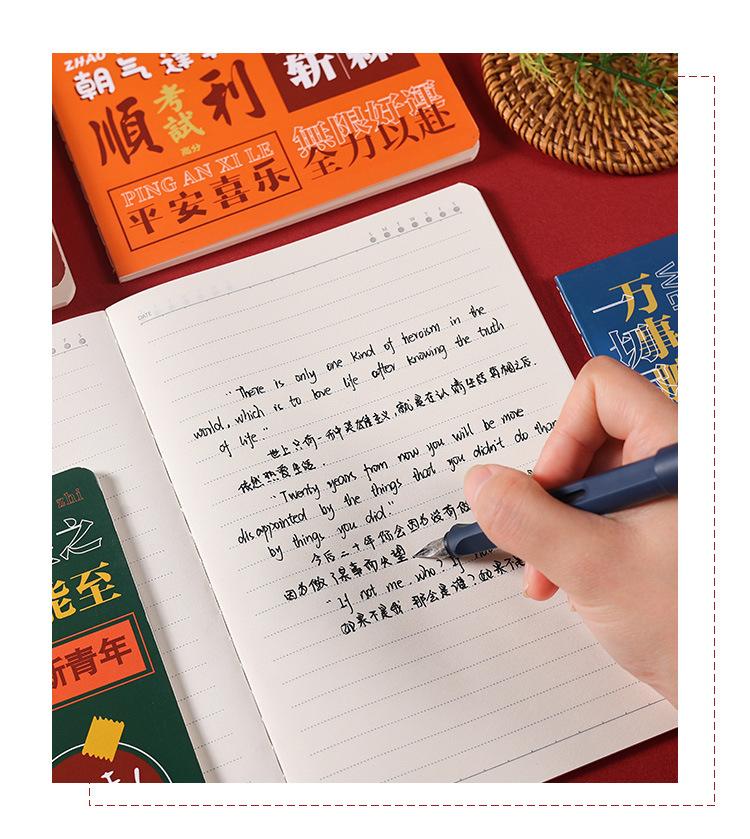 ZHAO
朝气蓬
順 考試 利
高分
斩
無限好運
全力以赴
PING AN XI LE
平安喜乐
S M T W T F S
DATE
万事
一切
"There is only one kind of heroism in the
world, which is to love life after knowing the truth
of life."
世上只有一种英雄主义,就是在认清生活真相之后,
依然热爱生活.
"Twenty years from now you will be more
disappointed by the things that you didn't do than
by things you did."
今后二十年你会因为没有做
因为做了某事而失望
"If not me, who? If not
如果不是我,那会是谁?如果不是
zhi
之
能至
新青年